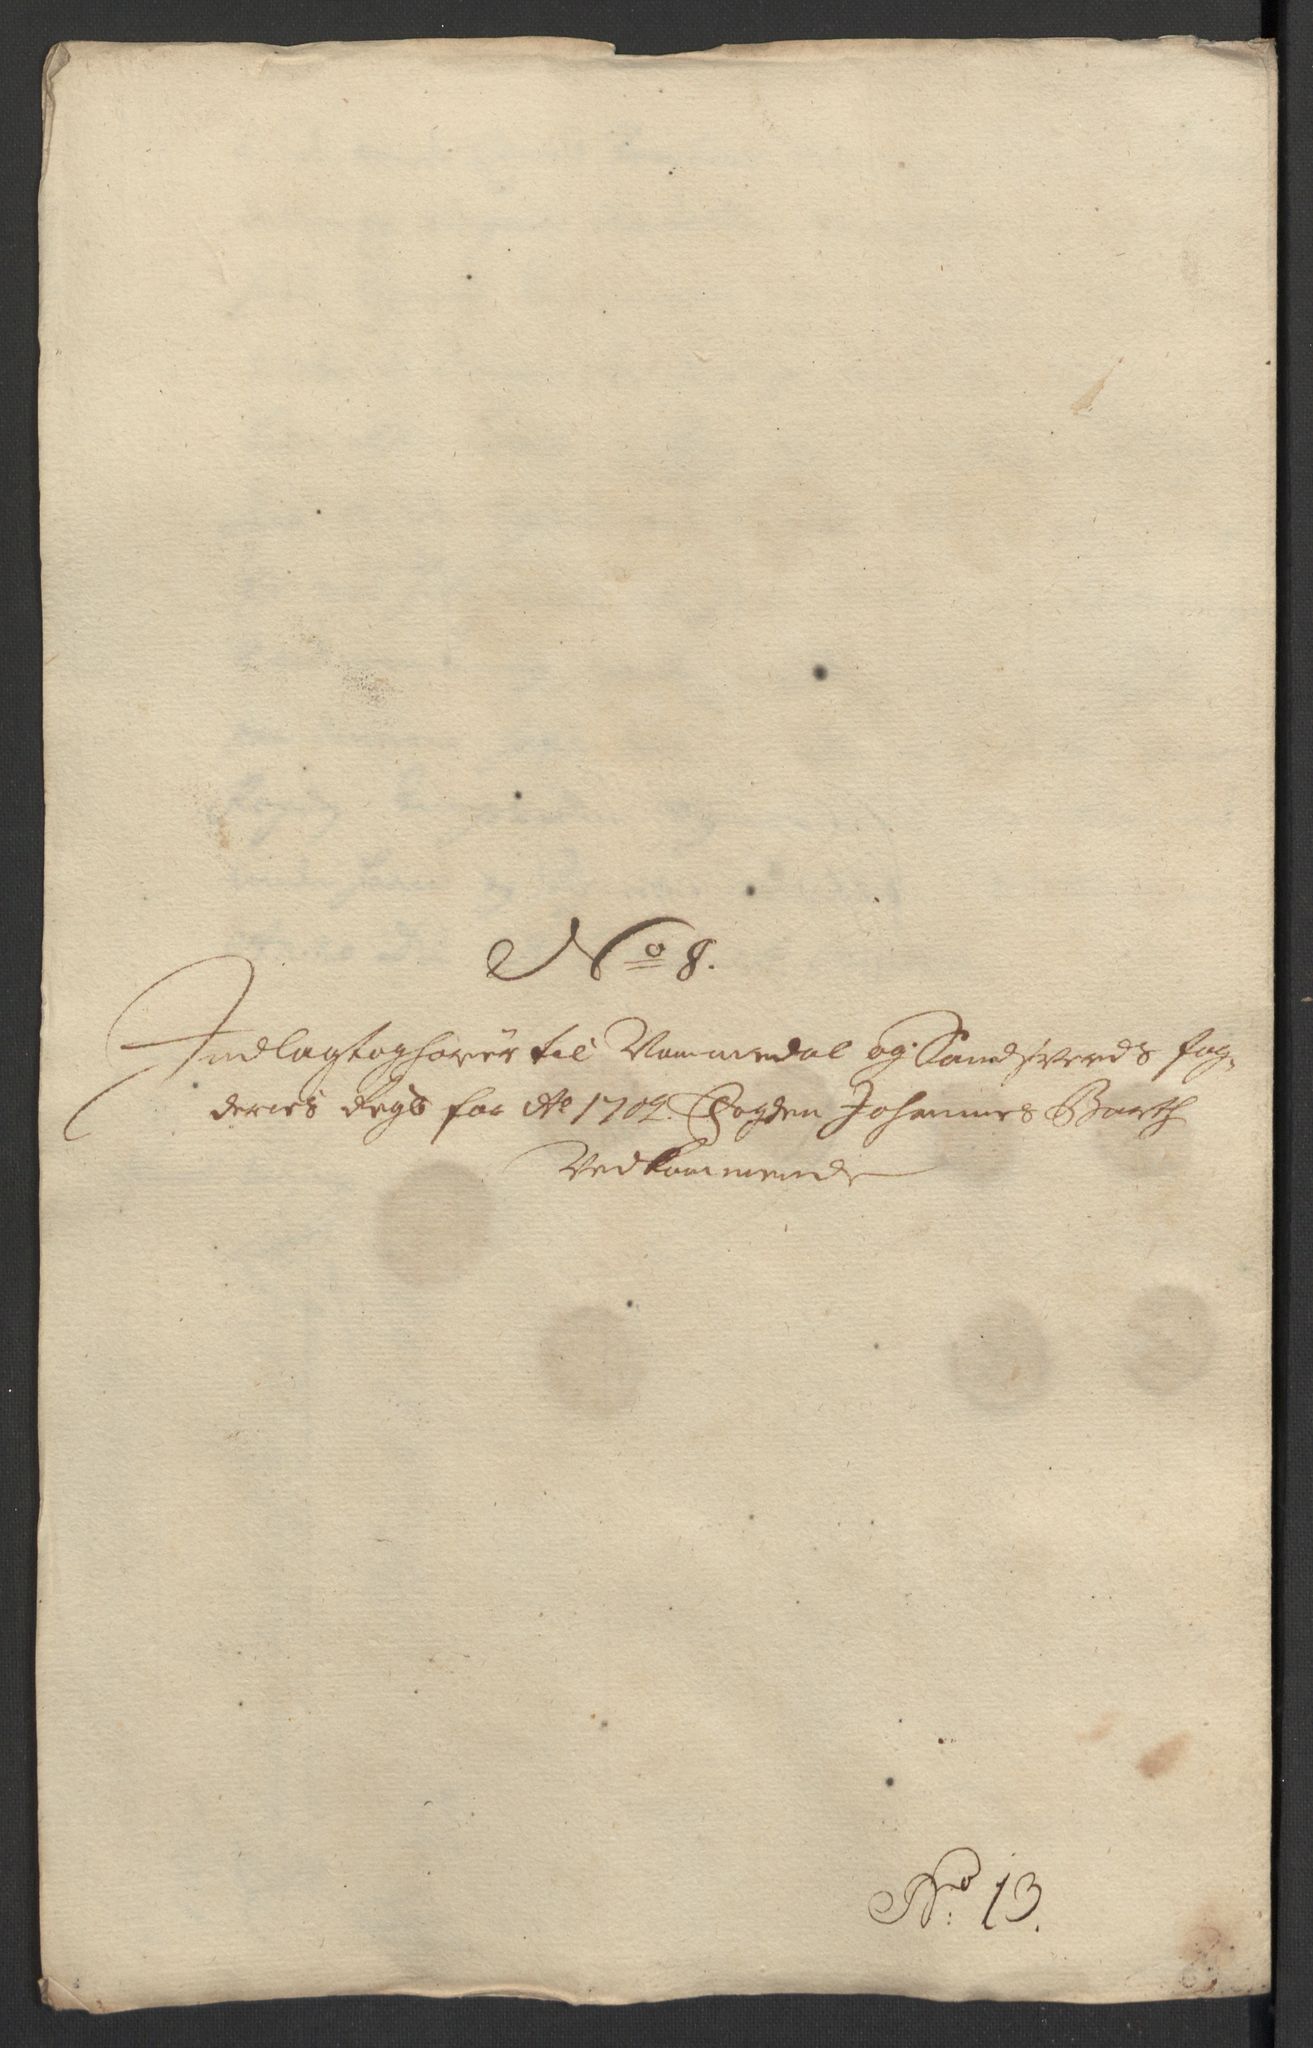 No 8.
Indlagt og hører til Nommedal og Sandsverds fog-
deries Regs for Ao 1709. Fogden Johannes Barth
Vedkommende
No: 13.